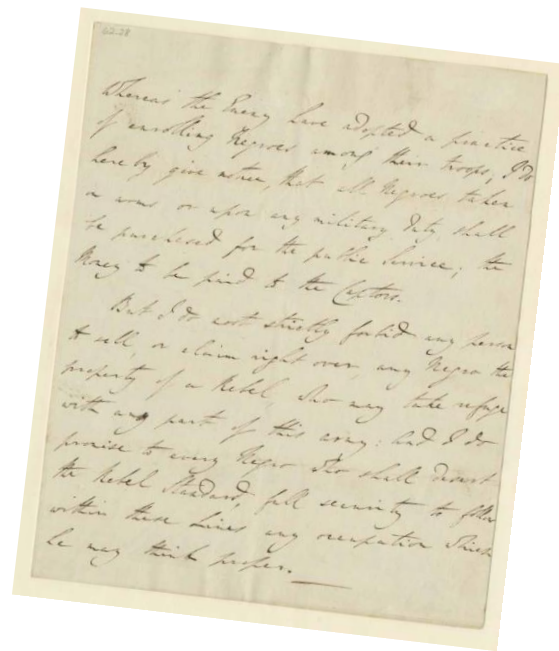 62.28
Whereas the Enemy have adopted a practice
of enrolling Negroes among their troops, I do
hereby give notice, that all Negroes taken
in arms or upon any military duty shall
be purchased for the public Service; the
Money to be paid to the Captors.
But I do most strictly forbid any person
to sell, or claim right over, any Negro the
property of a Rebel, who may take refuge
with any part of this army: And I do
promise to every Negro who shall desert
the Rebel Standard, full security to follow
within these Lines any occupation which
he may think proper.